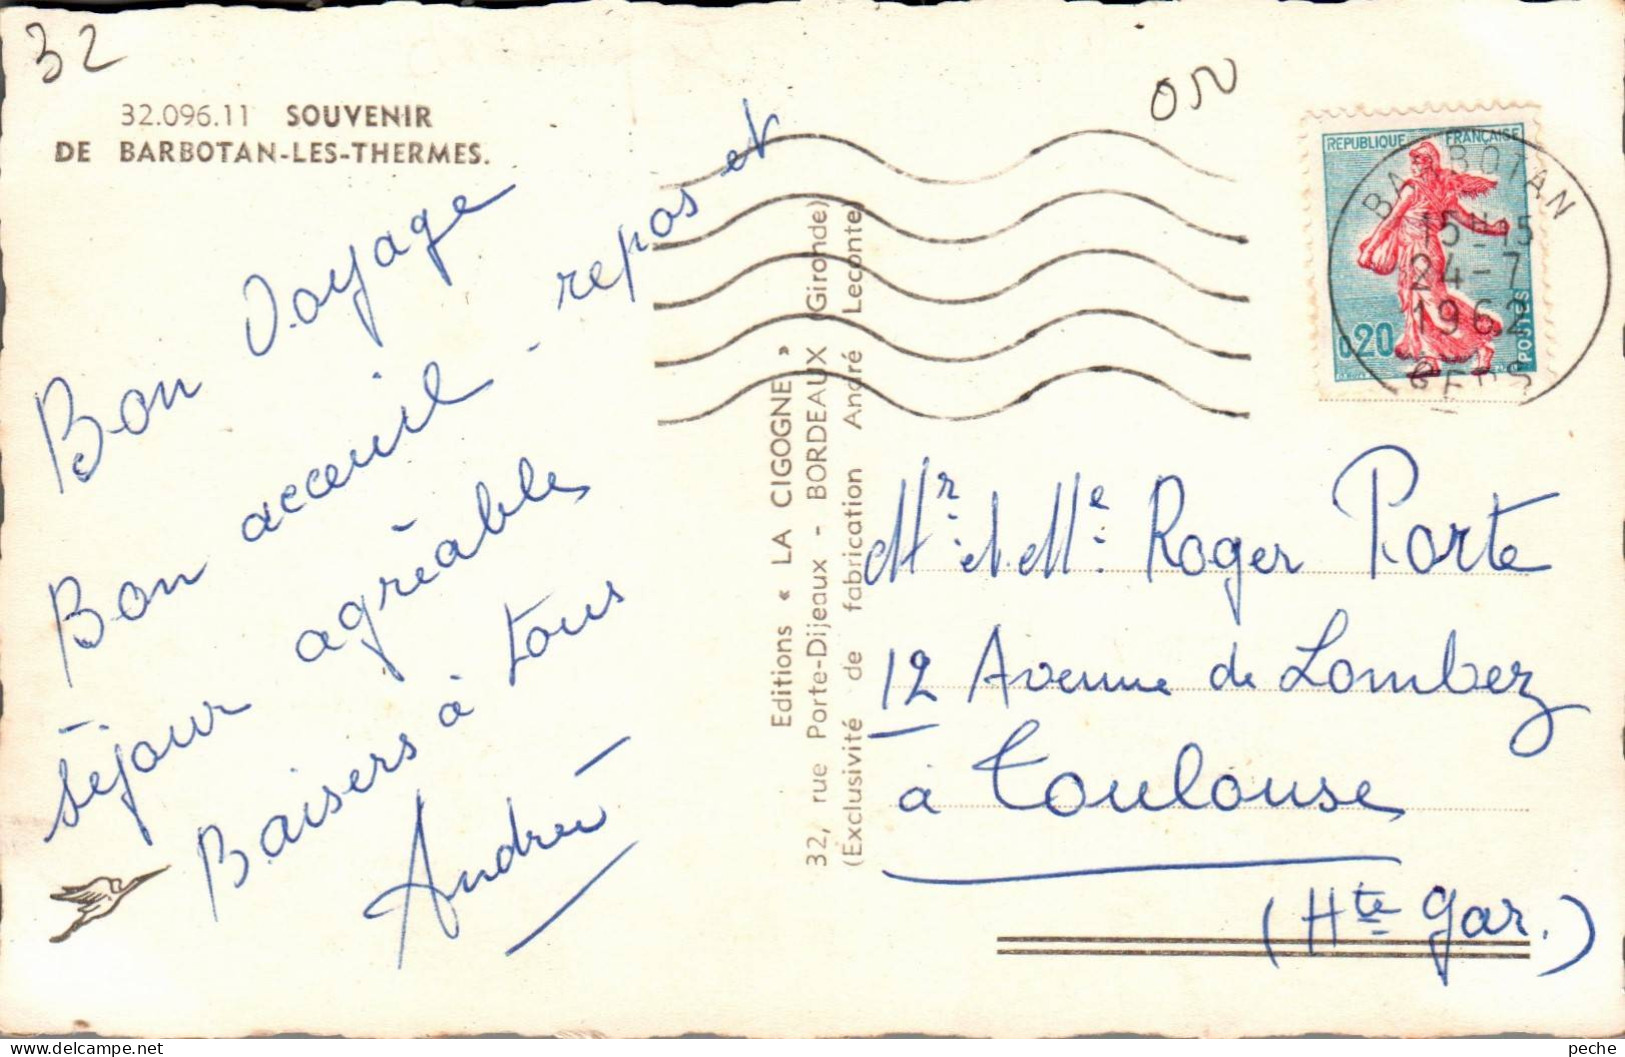 32
32.096.11 SOUVENIR
DE BARBOTAN-LES-THERMES.
Bon voyage
Bon acceuil - repos et
séjour agréables
Baisers à tous
Andrée
Editions « LA CIGOGNE »
32, rue Porte-Dijeaux - BORDEAUX (Gironde)
(Exclusivité de fabrication André Leconte)
050
REPUBLIQUE FRANÇAISE
0,20
POSTES
BARBOTAN
15H15
24-7
1962
GERS
Mr et Me Roger Porte
12 Avenue de Lombez
à Toulouse
(Hte Gar.)
peche